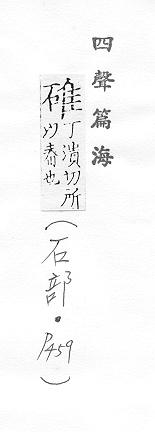 四聲篇海
碓丁潰切所
以舂也
(石部·P459)